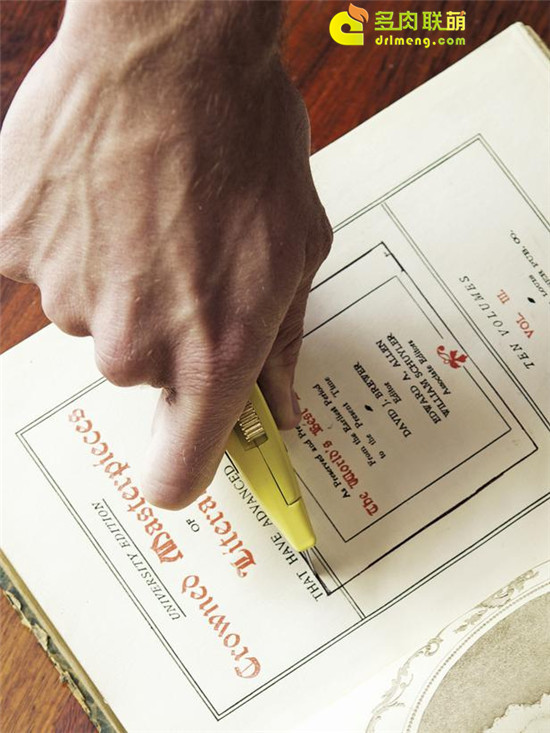 多肉联萌
drlmeng.com
Crowned Masterpieces
OF
THAT HAVE ADVANCED
UNIVERSITY EDITION
As Preserved and
The World's Best
From the Earliest Period
to the Present Time
DAVID J. BREWER
Editor
EDWARD A. ALLEN
WILLIAM SCHUYLER
Associate Editors
TEN VOLUMES
VOL. III.